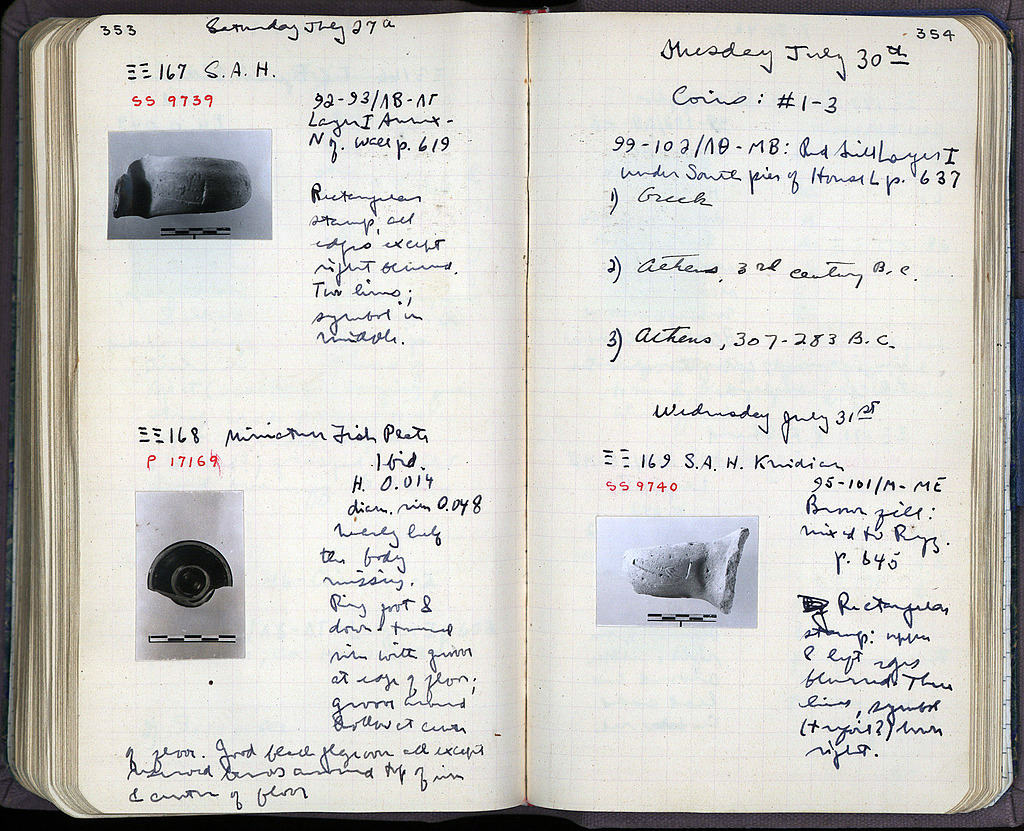 353
Saturday July 27th
ΞΞ 167 S.A.H.
SS 9739
92-93/ΛΒ-ΛΓ
Layer I Annex -
N of wall p. 619
Rectangular
stamp, all
edges except
right blurred.
Two lines;
symbol in
middle.
ΞΞ 168 Miniature Fish Plate
P 17169
Ibid.
H. 0.014
diam. rim 0.048
Nearly half
the body
missing.
Ring foot &
down-turned
rim with groove
at edge of floor;
groove around
hollow at center
of floor. Good black glaze on all except
reserved bands around top of rim
& center of floor
354
Tuesday July 30th
Coins: #1-3
99-102/ΛΘ-ΜΒ: Red fill Layer I
under South pier of House L p. 637
1) Greek
2) Athens, 3rd century B.C.
3) Athens, 307-283 B.C.
Wednesday July 31st
ΞΞ 169 S.A.H. Knidian
SS 9740
95-101/Μ-ΜΕ
Brown fill:
mixed to Byz.
p. 645
Rectangular
stamp: upper
& left edges
blurred. Three
lines, symbol
(tripod?) lower
right.